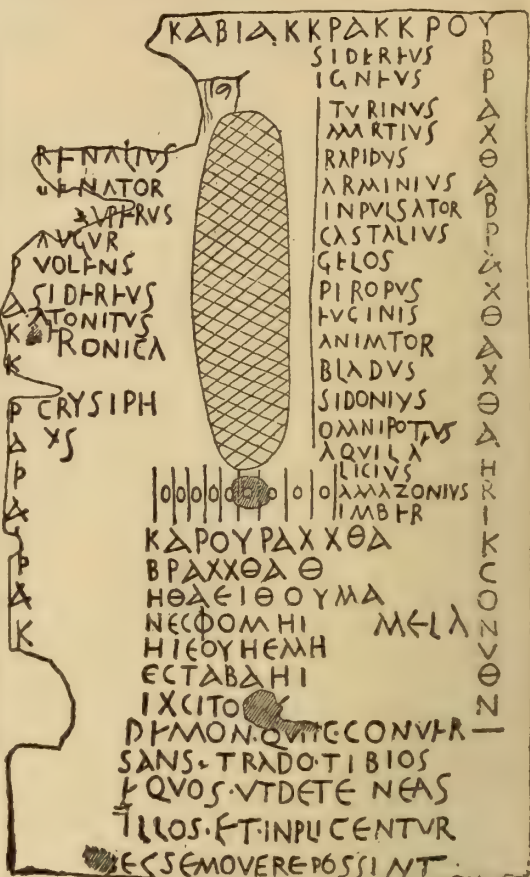 ΚΑΒΙΑΚΚΡΑΚΚΡΟΥ
SIDEREVS
IGNEVS
TVRINVS
MARTIVS
RAPIDVS
ARMINIVS
INPVLSATOR
CASTALIVS
GELOS
PIROPVS
EVGINIS
ANIMTOR
BLADVS
SIDONIVS
OMNIPOTVS
AQVILA
LICIVS
AMAZONIVS
IMBER
RENATIVS
VENATOR
SVPERVS
AVGVR
VOLENS
SIDEREVS
ATONITVS
RONICA
CRYSIPH
VS
ΒΡΑΧΘΑΒΡΑΧΘΑΧΘΑΗRΙΚϹΟΝVΘΝ
ΡΑΚΚΡΑΡΑΡΑΚ
ΚΑΡΟΥΡΑΧΧΘΑ
ΒΡΑΧΧΘΑΘ
ΗΘΑΕΙΘΟΥΜΑ
ΝΕϹΦΟΜΗΙ
MELA
ΗΙΕΟΥΗΕΜΗ
ΕϹΤΑΒΑΗΙ
IXCITO
DEMON·QVI EC CONVER
SANS·TRADO·TIBI OS
EQVOS·VT DETENEAS
ILLOS·ET·INPLICENTVR
EC SE MOVERE POSSINT·